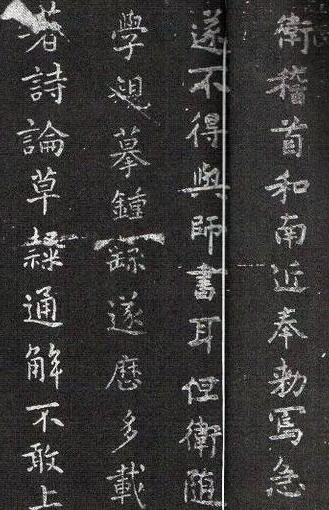 衛稽首和南近奉勅寫急
遂不得與師書耳但衛隨
學規摹鐘繇遂歷多載
著詩論草隸通解不敢上